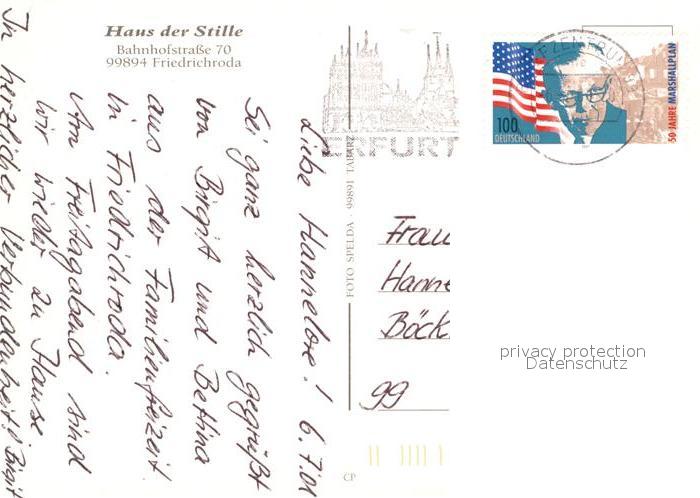 Haus der Stille
Bahnhofstraße 70
99894 Friedrichroda
ERFURT
100
DEUTSCHLAND
50 JAHRE MARSHALLPLAN
FOTO SPELDA · 99891 TABARZ
Liebe Hannelore! 6.7.01
Sei ganz herzlich gegrüßt
von Birgit und Bettina
aus der Familienfreizeit
in Friedrichroda.
Am Freitagabend sind
wir wieder zu Hause.
In herzlicher Verbundenheit! Birgit
Frau
Hanne
Böck
99
CP
privacy protection
Datenschutz